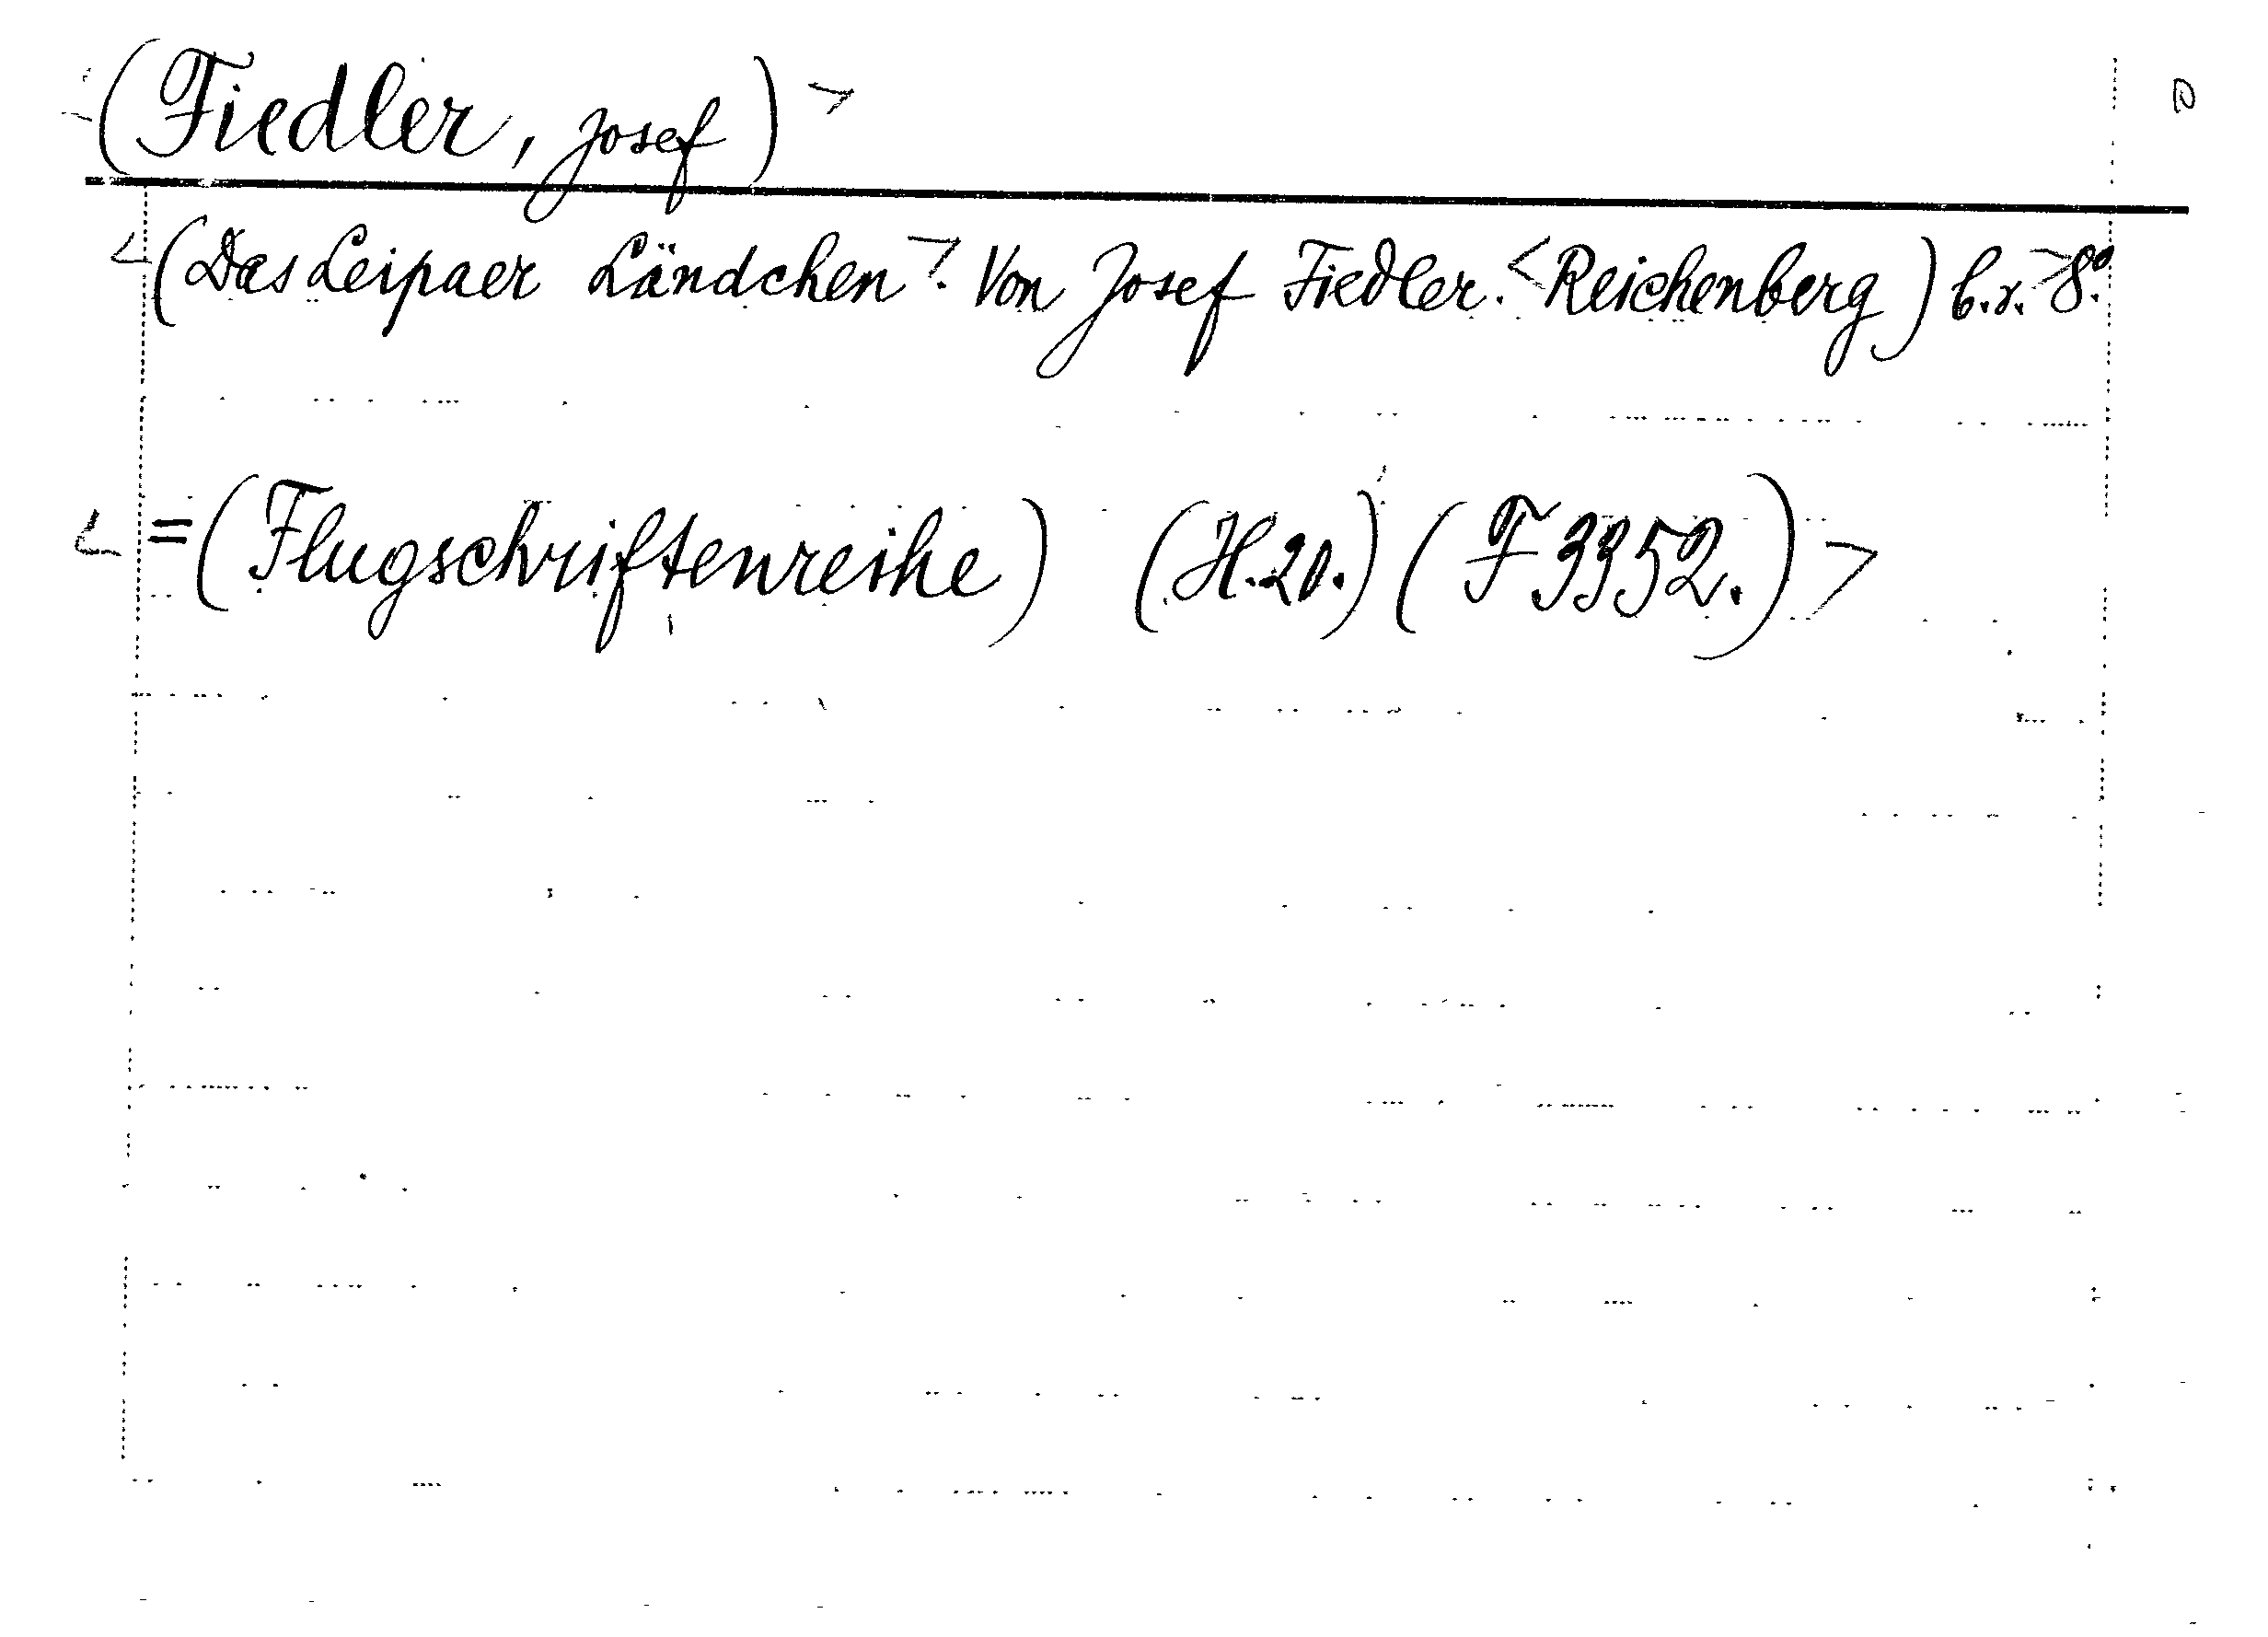 <(Fiedler, Josef)>
<(Das Leipaer Ländchen>. Von Josef Fiedler. <Reichenberg) b.r.> 8°.
<=(Flugschriftenreihe) (H.20.) (F 3352.)>